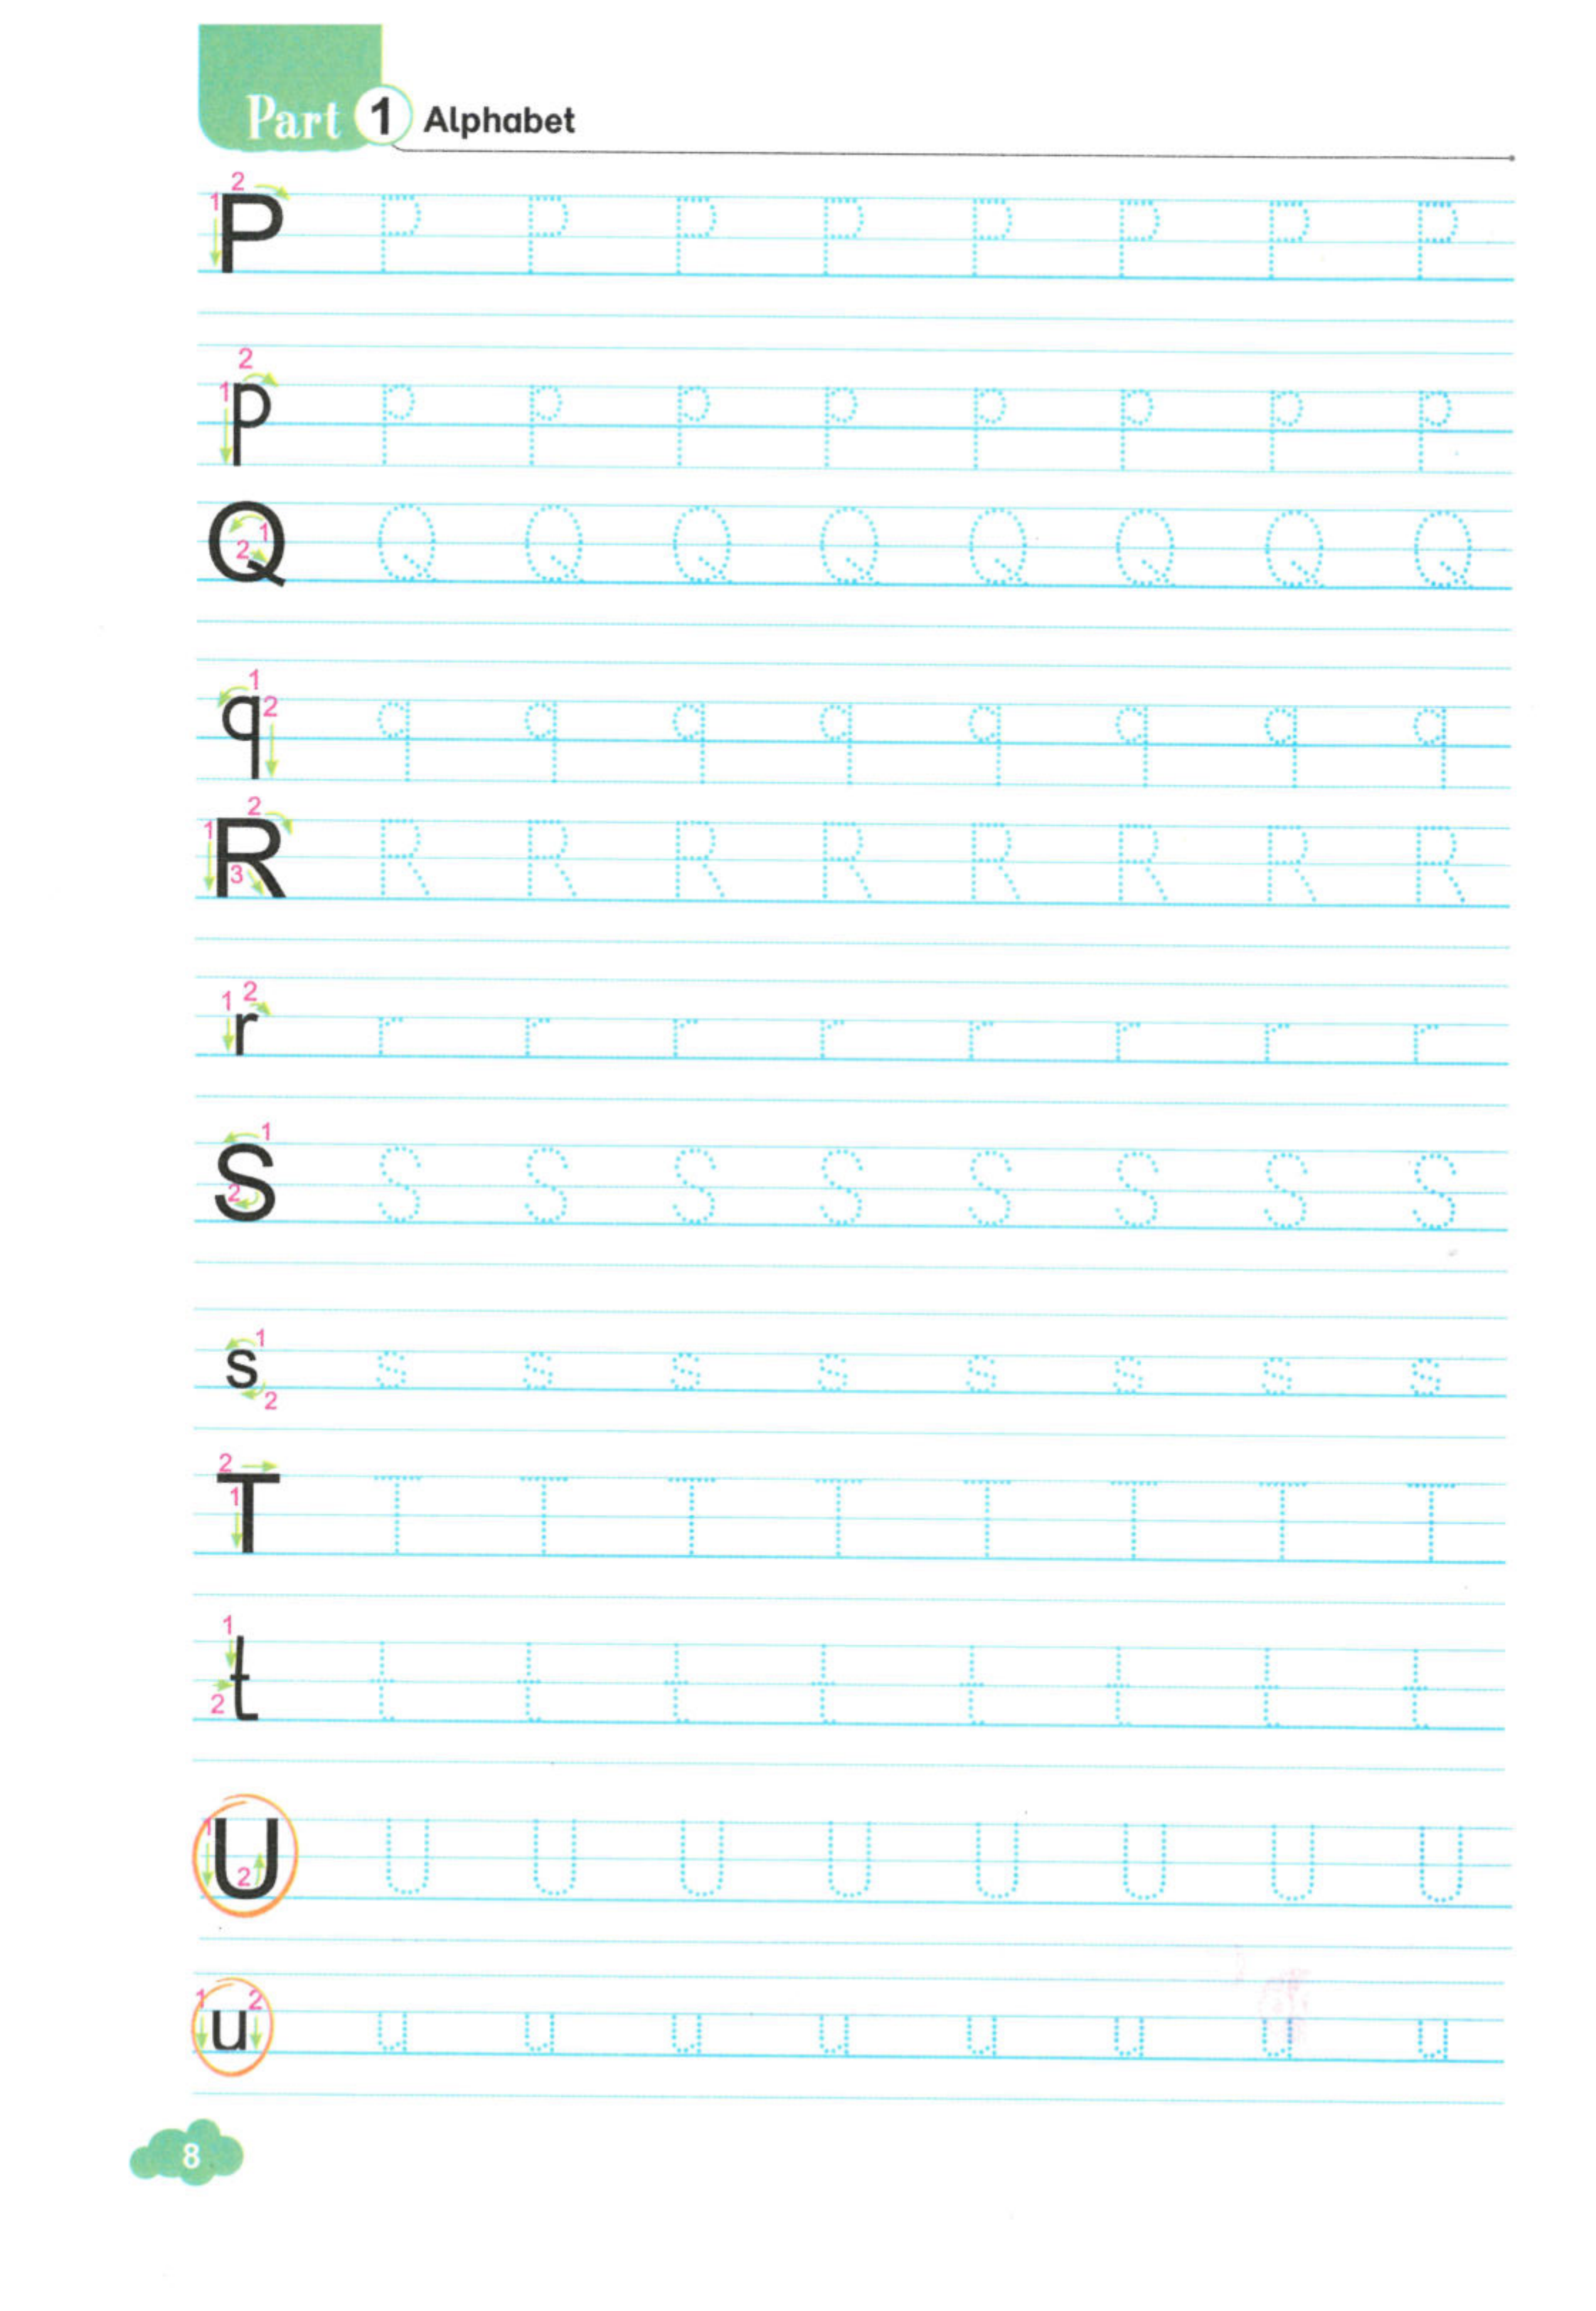 Part 1 Alphabet
2
1
P P P P P P P P P
2
1
p p p p p p p p p
Q Q Q Q Q Q Q Q Q
1
2
1
2
q q q q q q q q q
2
1
R R R R R R R R R
3
1 2
r r r r r r r r r
1
S S S S S S S S S
2
1
s s s s s s s s s
2
2
T T T T T T T T T
1
1
t t t t t t t t t
2
1
U U U U U U U U U
2
1 2
u u u u u u u u u
8